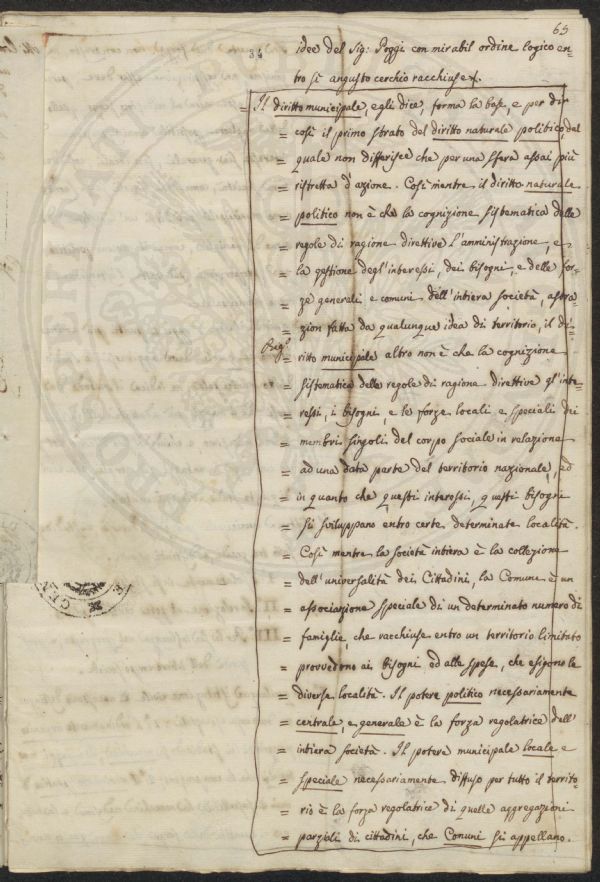 65
34
idee del Sig: Poggi con mirabil ordine logico en=
tro sì angusto cerchio racchiuse.
= Il diritto municipale, egli dice, forma la base, e per dir
= così il primo strato del diritto naturale politico, dal
= quale non differisce che per una sfera assai più
= ristretta d'azione. Così mentre il diritto naturale
= politico non è che la cognizione sistematica delle
= regole di ragione direttive l'amministrazione, e
= la gestione degl'interessi, dei bisogni, e delle for=
= ze generali e comuni dell'intiera società, astra=
= zion fatta da qualunque idea di territorio, il di=
= ritto municipale altro non è che la cognizione
= sistematica delle regole di ragione direttive gl'inte=
= ressi, i bisogni, e le forze locali e speciali dei
= membri singoli del corpo sociale in relazione
= ad una data parte del territorio nazionale, ed
= in quanto che questi interessi, questi bisogni
= si sviluppano entro certe determinate località.
= Così mentre la società intiera è la collezione
= dell'universalità dei Cittadini, la Comune è un
= associazione speciale di un determinato numero di
= famiglie, che racchiuse entro un territorio limitato
= provvedono ai bisogni ed alle spese, che esigono le
= diverse località. Il potere politico necessariamente
= centrale, e generale è la forza regolatrice dell'
= intiera società. Il potere municipale locale e
= speciale necessariamente diffuso per tutto il territo=
= rio è la forza regolatrice di quelle aggregazioni
= parziali di cittadini, che Comuni si appellano.